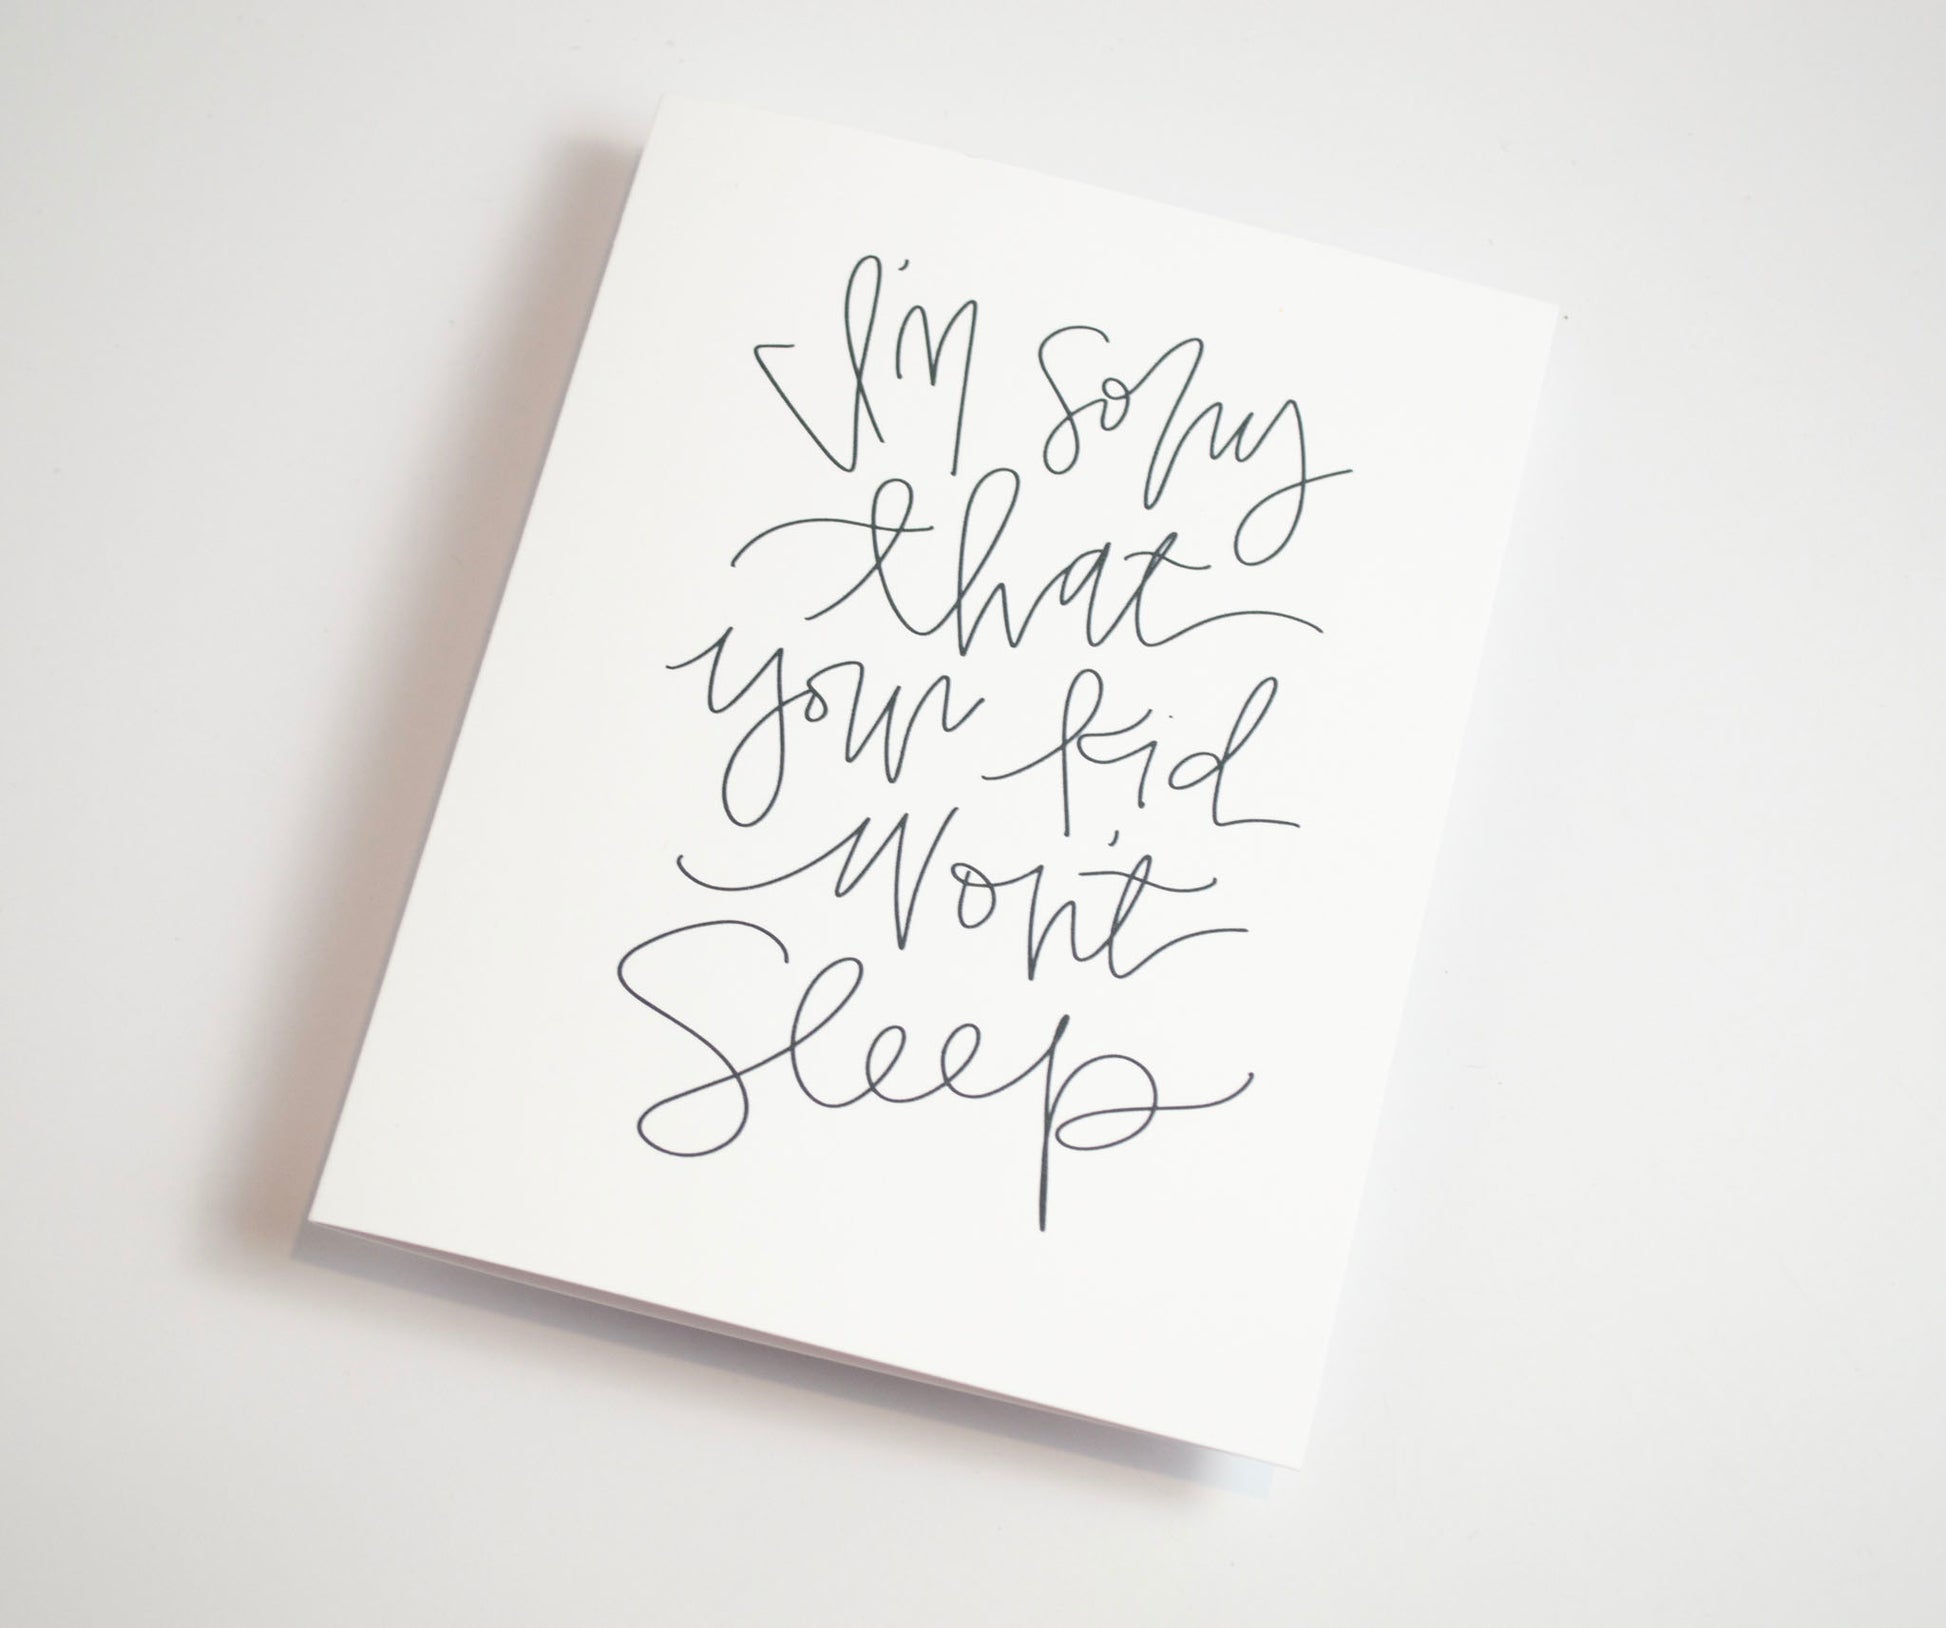 I'm sorry
that
your kid
won't
Sleep